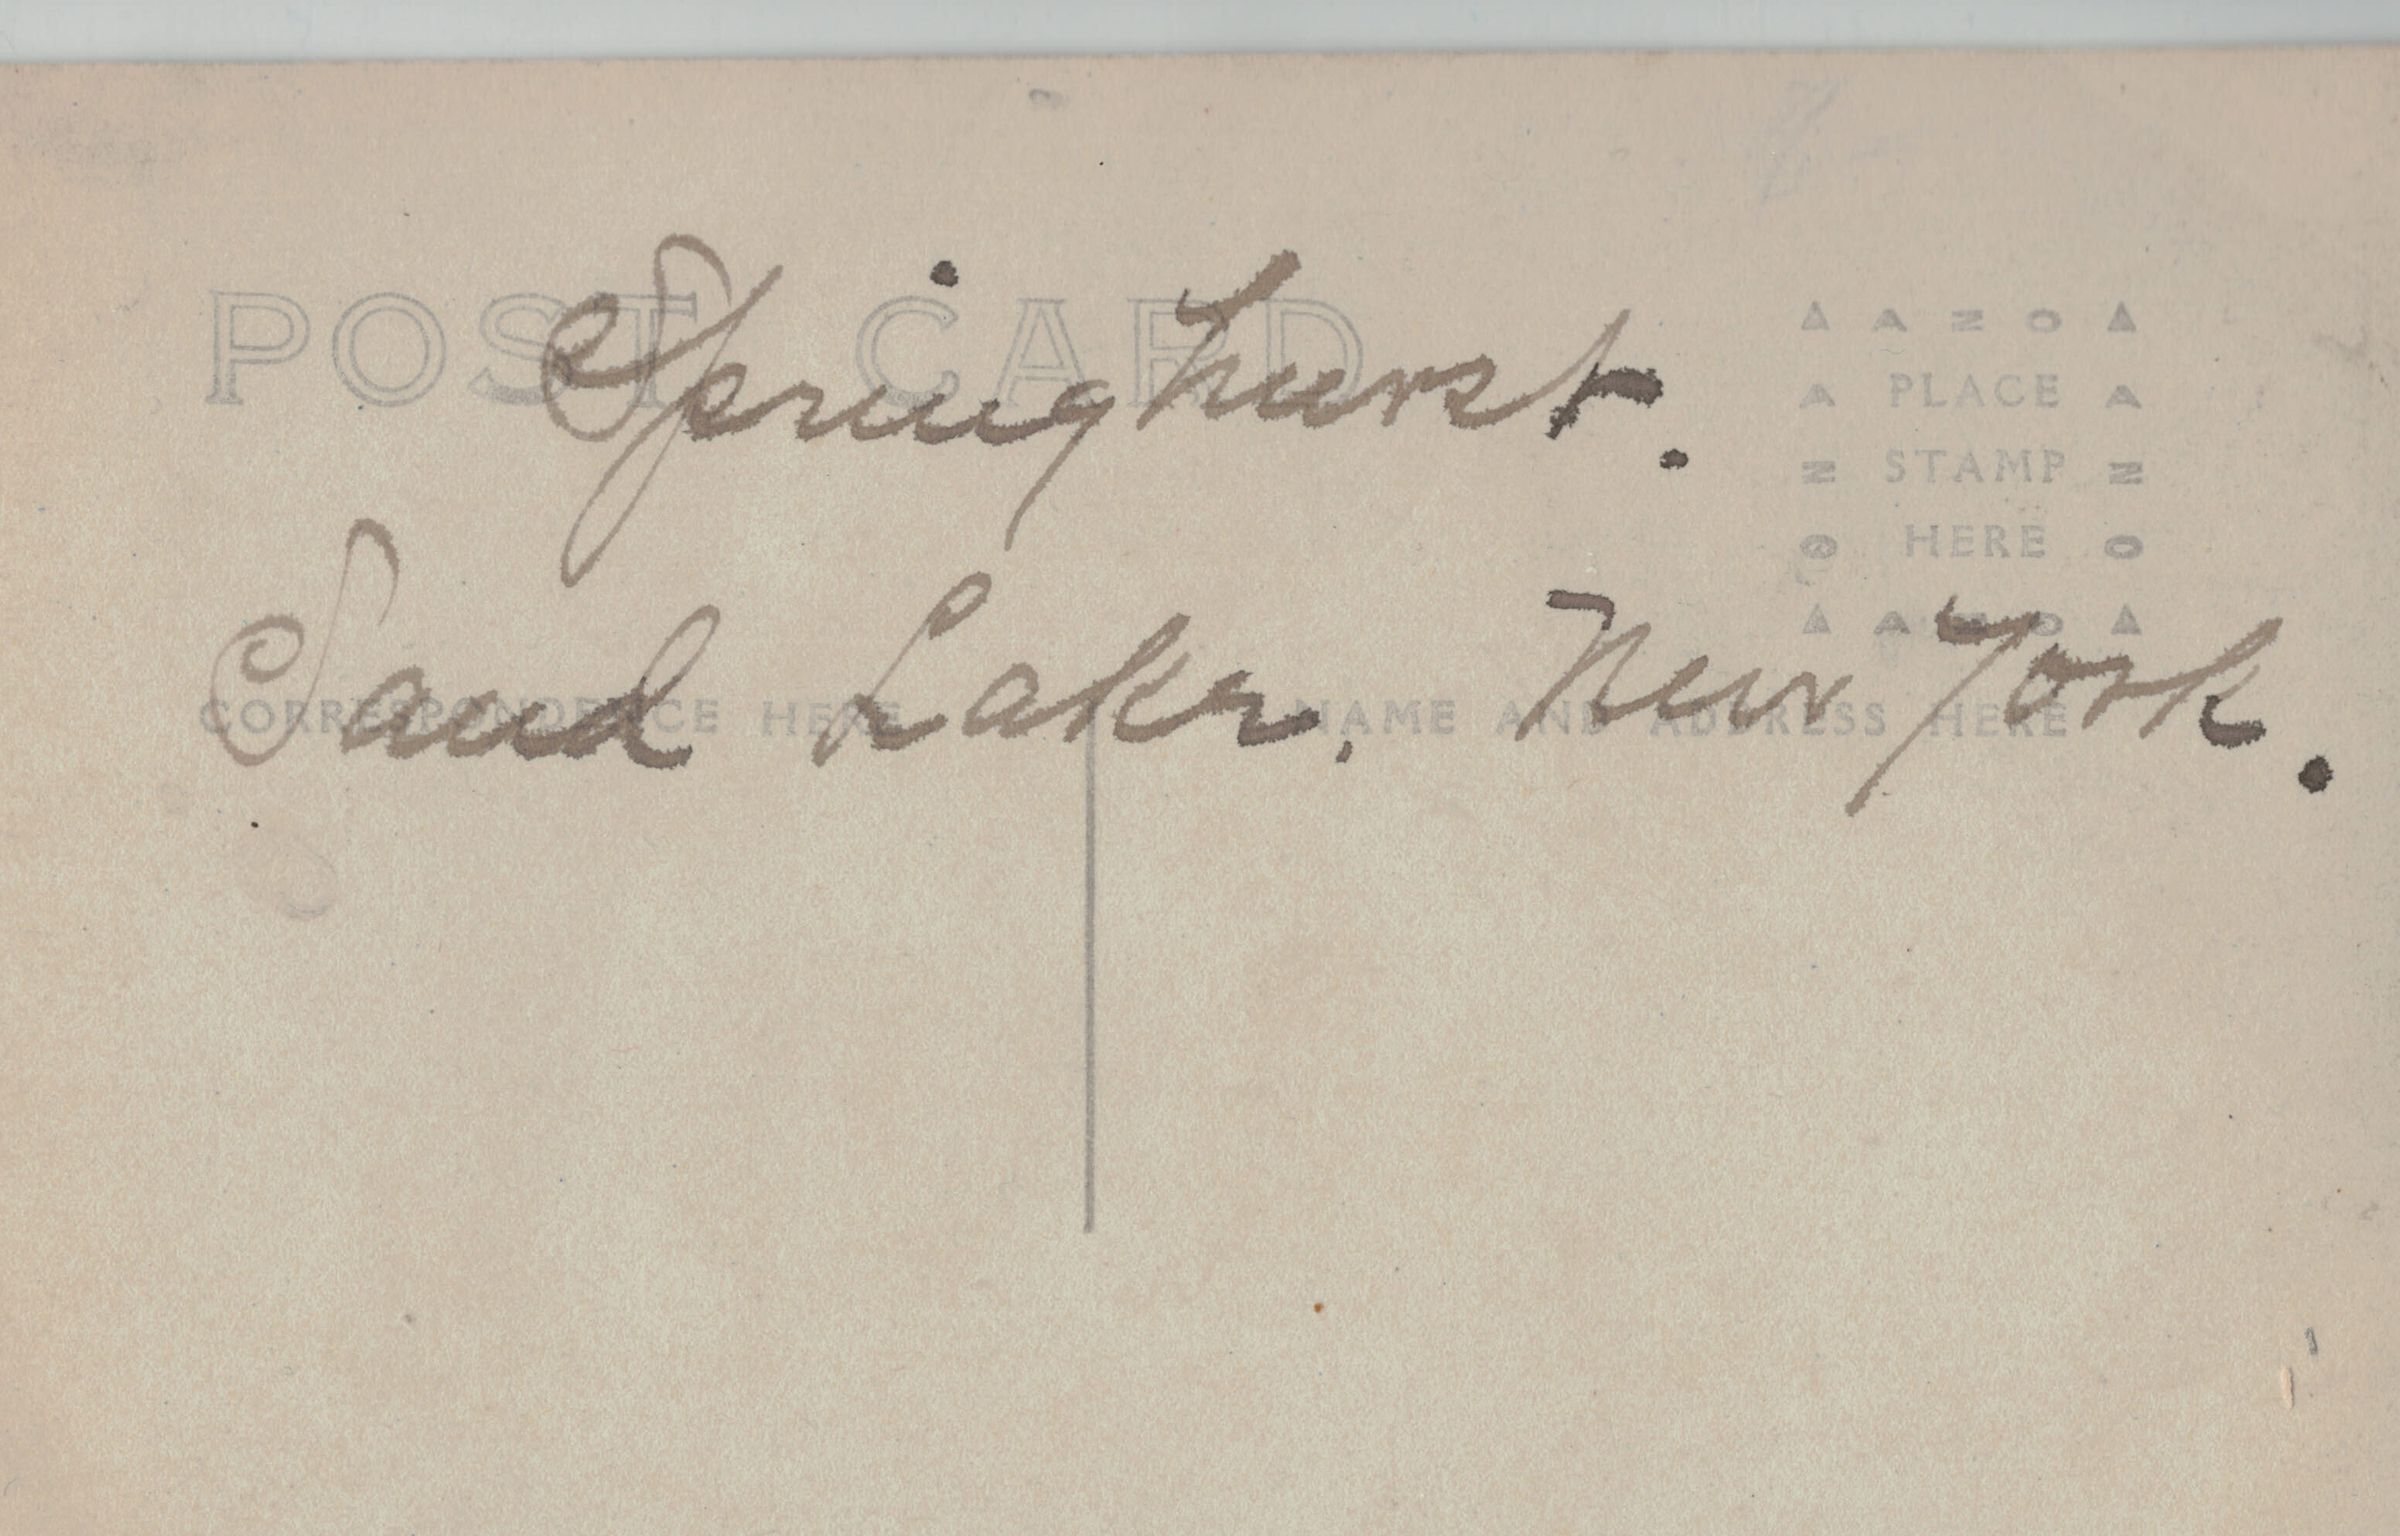 Springhurst.
POST CARD
▲ A N O ▲
A PLACE A
N STAMP N
O HERE O
▲ A N O ▲
Sand Lake, New York.
CORRESPONDENCE HERE
NAME AND ADDRESS HERE